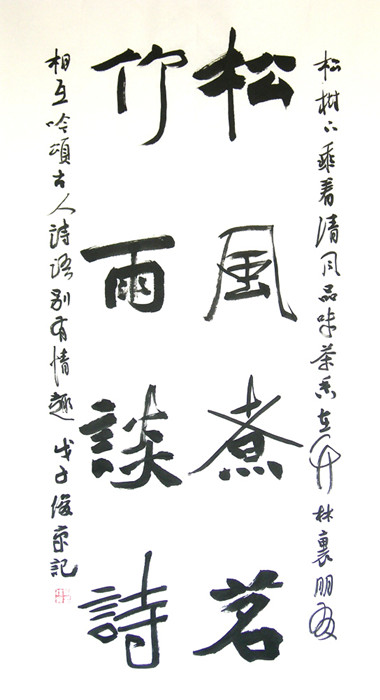 松樹下乘着清风品味茶香在竹林裏朋友
松風煮茗
竹雨談詩
相互吟頌古人詩語别有情趣 戊子記